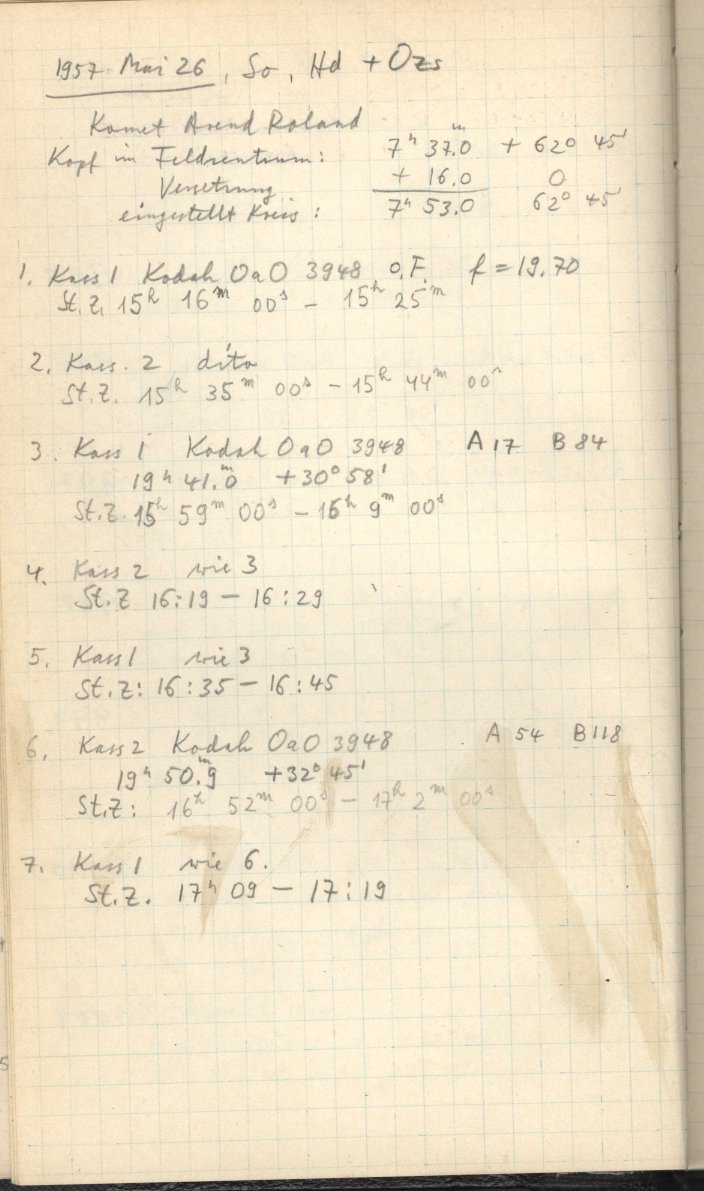 1957 Mai 26, So, Hd + Ozs
Komet Arend Roland
Kopf im Feldzentrum: 7ʰ 37.0ᵐ + 62° 45'
Versetzung + 16.0 0
eingestellt Kreis: 7ʰ 53.0 62° 45'
1. Kass 1 Kodak OaO 3948 o.F. f = 19.70
St.Z. 15ʰ 16ᵐ 00ˢ – 15ʰ 25ᵐ
2. Kass. 2 dito
St.Z. 15ʰ 35ᵐ 00ˢ – 15ʰ 44ᵐ 00ˢ
3. Kass 1 Kodak OaO 3948 A 17 B 84
19ʰ 41.0ᵐ +30° 58'
St.Z. 15ʰ 59ᵐ 00ˢ – 16ʰ 9ᵐ 00ˢ
4. Kass 2 wie 3
St.Z 16:19 – 16:29
5. Kass 1 wie 3
St.Z: 16:35 – 16:45
6. Kass 2 Kodak OaO 3948 A 54 B 118
19ʰ 50.9ᵐ +32° 45'
St.Z: 16ʰ 52ᵐ 00ˢ – 17ʰ 2ᵐ 00ˢ
7. Kass 1 wie 6.
St.Z. 17ʰ 09 – 17:19